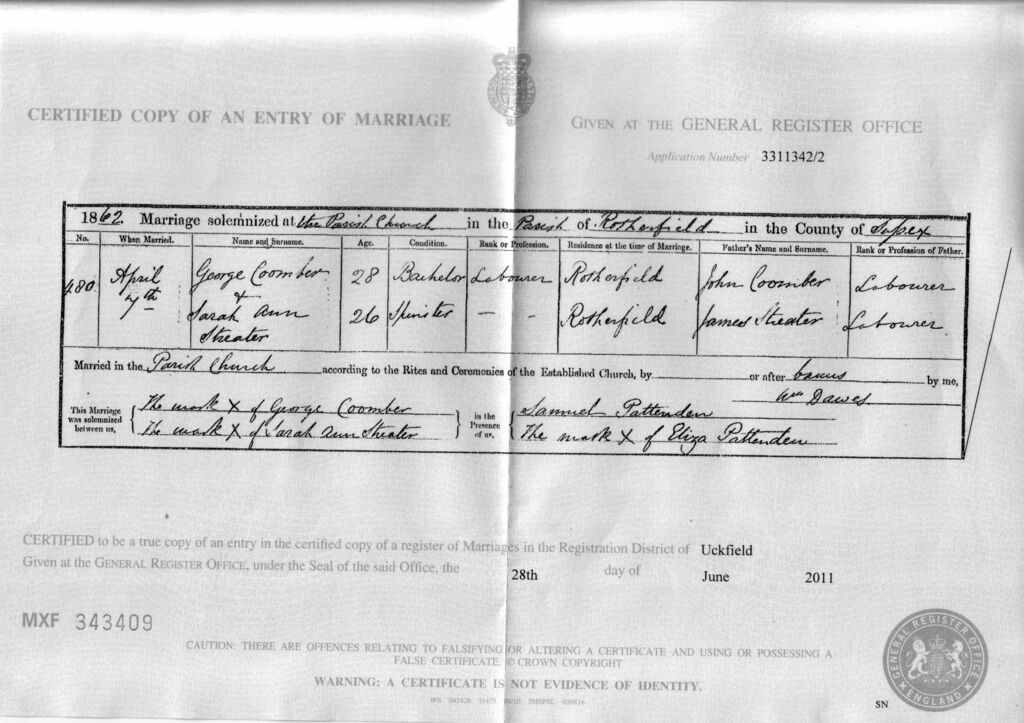 CERTIFIED COPY OF AN ENTRY OF MARRIAGE
GIVEN AT THE GENERAL REGISTER OFFICE
Application Number 3311342/2
1862. Marriage solemnized at the Parish Church in the Parish of Rotherfield in the County of Sussex
No. When Married. Name and Surname. Age. Condition. Rank or Profession. Residence at the time of Marriage. Father's Name and Surname. Rank or Profession of Father.
480 April 7th George Coomber 28 Bachelor Labourer Rotherfield John Coomber Labourer
&
Sarah Ann Streater 26 Spinster — - Rotherfield James Streater Labourer
Married in the Parish Church according to the Rites and Ceremonies of the Established Church, by or after banns by me,
Wm Dawes
This Marriage was solemnized between us, The mark X of George Coomber in the Presence of us, Samuel Pattenden
The mark X of Sarah Ann Streater The mark X of Eliza Pattenden
CERTIFIED to be a true copy of an entry in the certified copy of a register of Marriages in the Registration District of Uckfield
Given at the GENERAL REGISTER OFFICE, under the Seal of the said Office, the 28th day of June 2011
MXF 343409
CAUTION: THERE ARE OFFENCES RELATING TO FALSIFYING OR ALTERING A CERTIFICATE AND USING OR POSSESSING A
FALSE CERTIFICATE. © CROWN COPYRIGHT
WARNING: A CERTIFICATE IS NOT EVIDENCE OF IDENTITY.
GENERAL REGISTER OFFICE
ENGLAND
SN